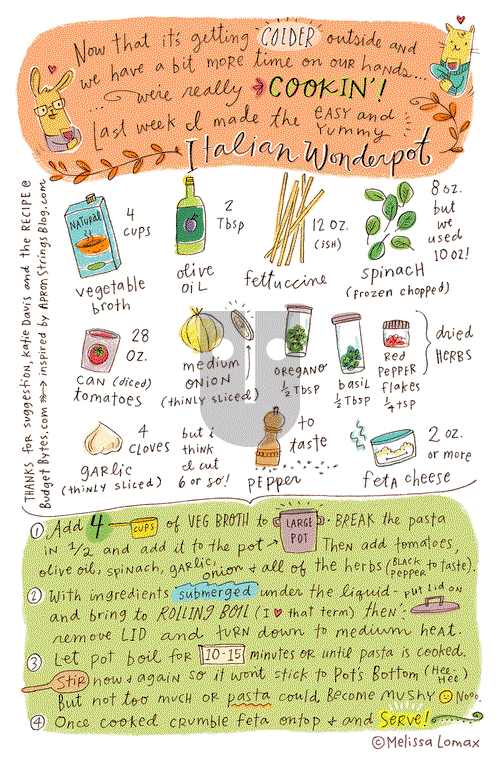 Now that it's getting COLDER outside and
we have a bit more time on our hands...
...we're really COOKIN'!
Last week I made the EASY and
Yummy
Italian Wonderpot
THANKS for suggestion, Katie Davis and the RECIPE @
Budget Bytes.com inspired by Apron Strings Blog.com
NATURAL
4
cups
vegetable
broth
2
Tbsp
olive
oil
12 oz.
(ish)
fettuccine
8 oz.
but
we
used
10 oz!
spinach
(frozen chopped)
28
oz.
can (diced)
tomatoes
medium
onion
(thinly sliced)
but i
think
i cut
6 or so!
oregano
1/2 Tbsp
basil
1/2 Tbsp
red
pepper
flakes
1/4 tsp
dried
HERBS
4
cloves
garlic
(thinly sliced)
to
taste
pepper
2 oz.
or more
feta cheese
1 Add 4 cups of VEG BROTH to LARGE POT. BREAK the pasta
in 1/2 and add it to the pot Then add tomatoes,
olive oil, spinach, garlic, onion + all of the herbs (BLACK PEPPER to taste).
2 With ingredients submerged under the liquid - put lid on
and bring to ROLLING BOIL (I ♥ that term) then
remove LID and turn down to medium heat.
3 Let pot boil for 10-15 minutes or until pasta is cooked.
Stir now + again so it won't stick to Pot's Bottom (Hee-Hee)
But not too much or pasta could become mushy Nooo.
4 Once cooked crumble feta on top + and Serve!
© Melissa Lomax